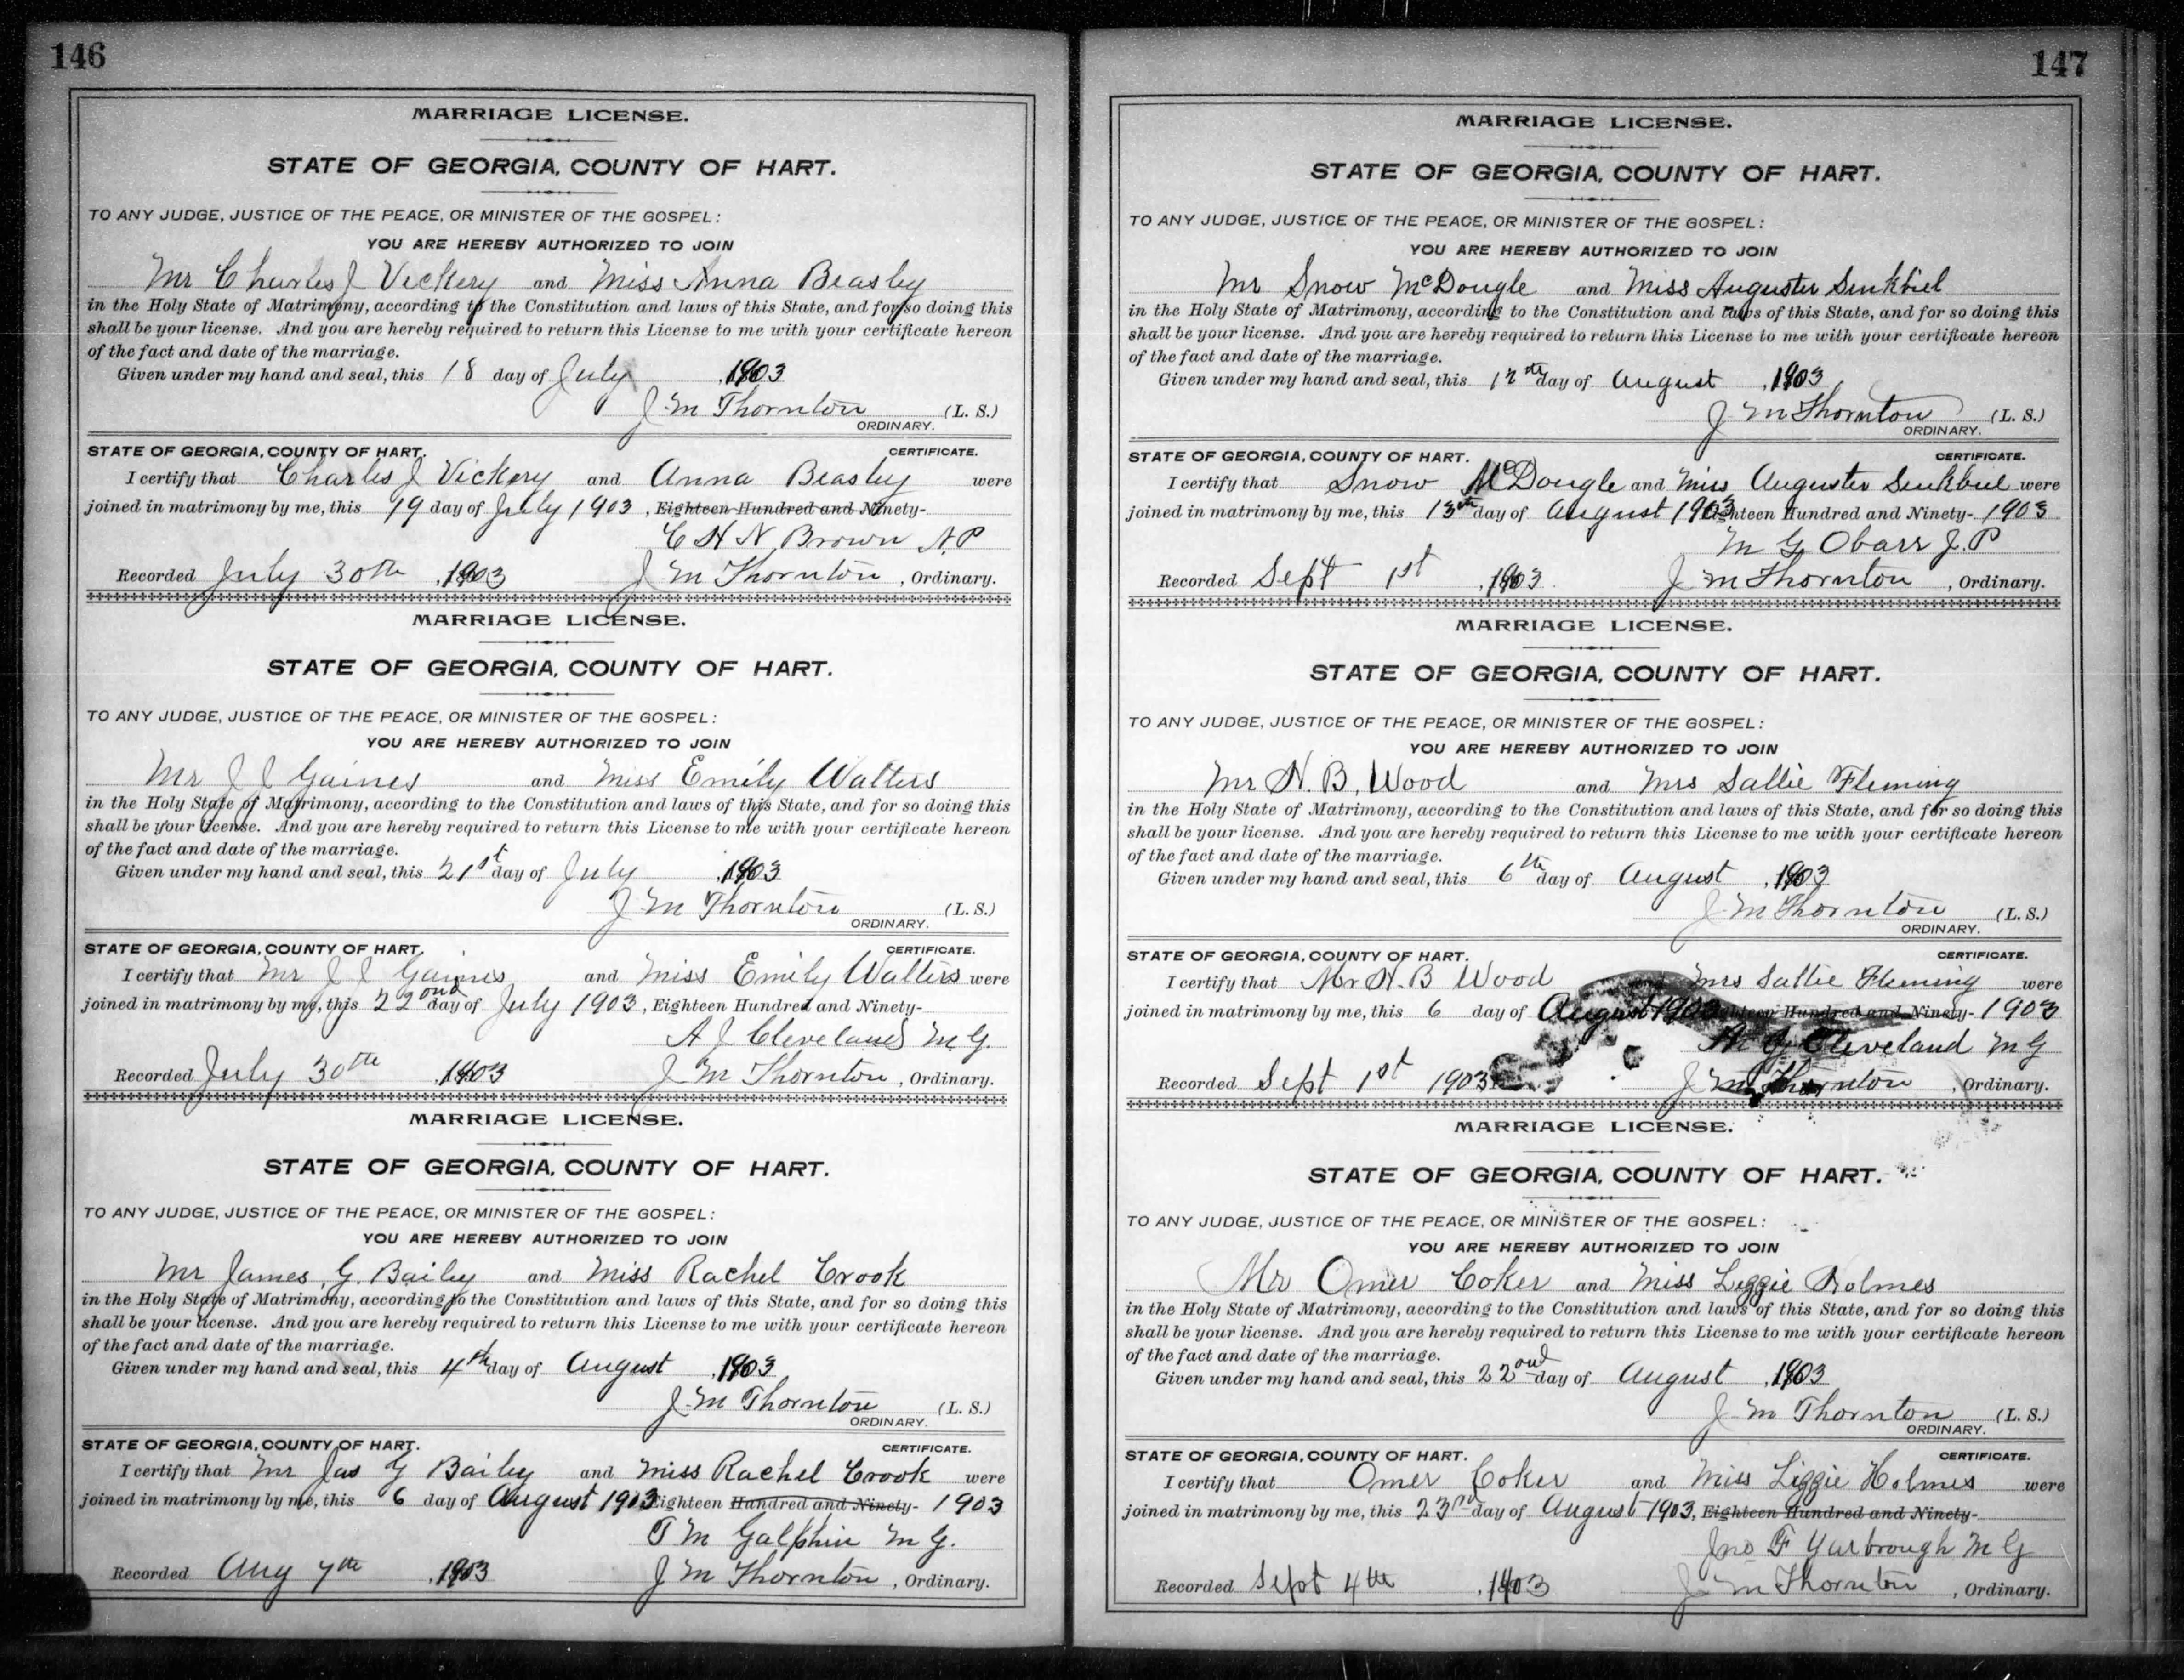 146
MARRIAGE LICENSE.
STATE OF GEORGIA, COUNTY OF HART.
TO ANY JUDGE, JUSTICE OF THE PEACE, OR MINISTER OF THE GOSPEL:
YOU ARE HEREBY AUTHORIZED TO JOIN
Mr Charles J Vickery and Miss Anna Beasley
in the Holy State of Matrimony, according to the Constitution and laws of this State, and for so doing this
shall be your license. And you are hereby required to return this License to me with your certificate hereon
of the fact and date of the marriage.
Given under my hand and seal, this 18 day of July, 1903
J M Thornton (L. S.)
ORDINARY.
STATE OF GEORGIA, COUNTY OF HART. CERTIFICATE.
I certify that Charles J Vickery and Anna Beasley were
joined in matrimony by me, this 19 day of July 1903, Eighteen Hundred and Ninety-
C H N Brown N.P
Recorded July 30th, 1903 J M Thornton, Ordinary.
MARRIAGE LICENSE.
STATE OF GEORGIA, COUNTY OF HART.
TO ANY JUDGE, JUSTICE OF THE PEACE, OR MINISTER OF THE GOSPEL:
YOU ARE HEREBY AUTHORIZED TO JOIN
Mr J J Gaines and Miss Emily Walters
in the Holy State of Matrimony, according to the Constitution and laws of this State, and for so doing this
shall be your license. And you are hereby required to return this License to me with your certificate hereon
of the fact and date of the marriage.
Given under my hand and seal, this 21st day of July, 1903
J M Thornton (L. S.)
ORDINARY.
STATE OF GEORGIA, COUNTY OF HART. CERTIFICATE.
I certify that Mr J J Gaines and Miss Emily Walters were
joined in matrimony by me, this 22ond day of July 1903, Eighteen Hundred and Ninety-
A J Cleveland M G.
Recorded July 30th, 1903 J M Thornton, Ordinary.
MARRIAGE LICENSE.
STATE OF GEORGIA, COUNTY OF HART.
TO ANY JUDGE, JUSTICE OF THE PEACE, OR MINISTER OF THE GOSPEL:
YOU ARE HEREBY AUTHORIZED TO JOIN
Mr James. G. Bailey and Miss Rachel Crook
in the Holy State of Matrimony, according to the Constitution and laws of this State, and for so doing this
shall be your license. And you are hereby required to return this License to me with your certificate hereon
of the fact and date of the marriage.
Given under my hand and seal, this 4th day of August, 1903
J M Thornton (L. S.)
ORDINARY.
STATE OF GEORGIA, COUNTY OF HART. CERTIFICATE.
I certify that Mr Jas G Bailey and Miss Rachel Crook were
joined in matrimony by me, this 6 day of August 1903 Eighteen Hundred and Ninety- 1903
T M Galphin M G.
Recorded Aug 7th, 1903 J M Thornton, Ordinary.
147
MARRIAGE LICENSE.
STATE OF GEORGIA, COUNTY OF HART.
TO ANY JUDGE, JUSTICE OF THE PEACE, OR MINISTER OF THE GOSPEL:
YOU ARE HEREBY AUTHORIZED TO JOIN
Mr Snow McDougle and Miss Auguster
in the Holy State of Matrimony, according to the Constitution and laws of this State, and for so doing this
shall be your license. And you are hereby required to return this License to me with your certificate hereon
of the fact and date of the marriage.
Given under my hand and seal, this day of August, 1903
J M Thornton (L. S.)
ORDINARY.
STATE OF GEORGIA, COUNTY OF HART. CERTIFICATE.
I certify that Snow McDougle and Miss Auguster were
joined in matrimony by me, this 13th day of August 1903 Eighteen Hundred and Ninety- 1903
M G Obarr J. P
Recorded Sept 1st, 1903 J M Thornton, Ordinary.
MARRIAGE LICENSE.
STATE OF GEORGIA, COUNTY OF HART.
TO ANY JUDGE, JUSTICE OF THE PEACE, OR MINISTER OF THE GOSPEL:
YOU ARE HEREBY AUTHORIZED TO JOIN
Mr H. B. Wood and Mrs Sallie Fleming
in the Holy State of Matrimony, according to the Constitution and laws of this State, and for so doing this
shall be your license. And you are hereby required to return this License to me with your certificate hereon
of the fact and date of the marriage.
Given under my hand and seal, this 6th day of August, 1903
J M Thornton (L. S.)
ORDINARY.
STATE OF GEORGIA, COUNTY OF HART. CERTIFICATE.
I certify that Mr H. B Wood Mrs Sallie Fleming were
joined in matrimony by me, this 6 day of August 1903 Eighteen Hundred and Ninety- 1903
Cleveland M G
Recorded Sept 1st 1903 J M Thornton, Ordinary.
MARRIAGE LICENSE.
STATE OF GEORGIA, COUNTY OF HART.
TO ANY JUDGE, JUSTICE OF THE PEACE, OR MINISTER OF THE GOSPEL:
YOU ARE HEREBY AUTHORIZED TO JOIN
Mr Omer Coker and Miss Lizzie Holmes
in the Holy State of Matrimony, according to the Constitution and laws of this State, and for so doing this
shall be your license. And you are hereby required to return this License to me with your certificate hereon
of the fact and date of the marriage.
Given under my hand and seal, this 22ond day of August, 1903
J M Thornton (L. S.)
ORDINARY.
STATE OF GEORGIA, COUNTY OF HART. CERTIFICATE.
I certify that Omer Coker and Miss Lizzie Holmes were
joined in matrimony by me, this 23rd day of August 1903, Eighteen Hundred and Ninety-
Jno F Yarbrough M G
Recorded Sept 4th, 1903 J M Thornton, Ordinary.